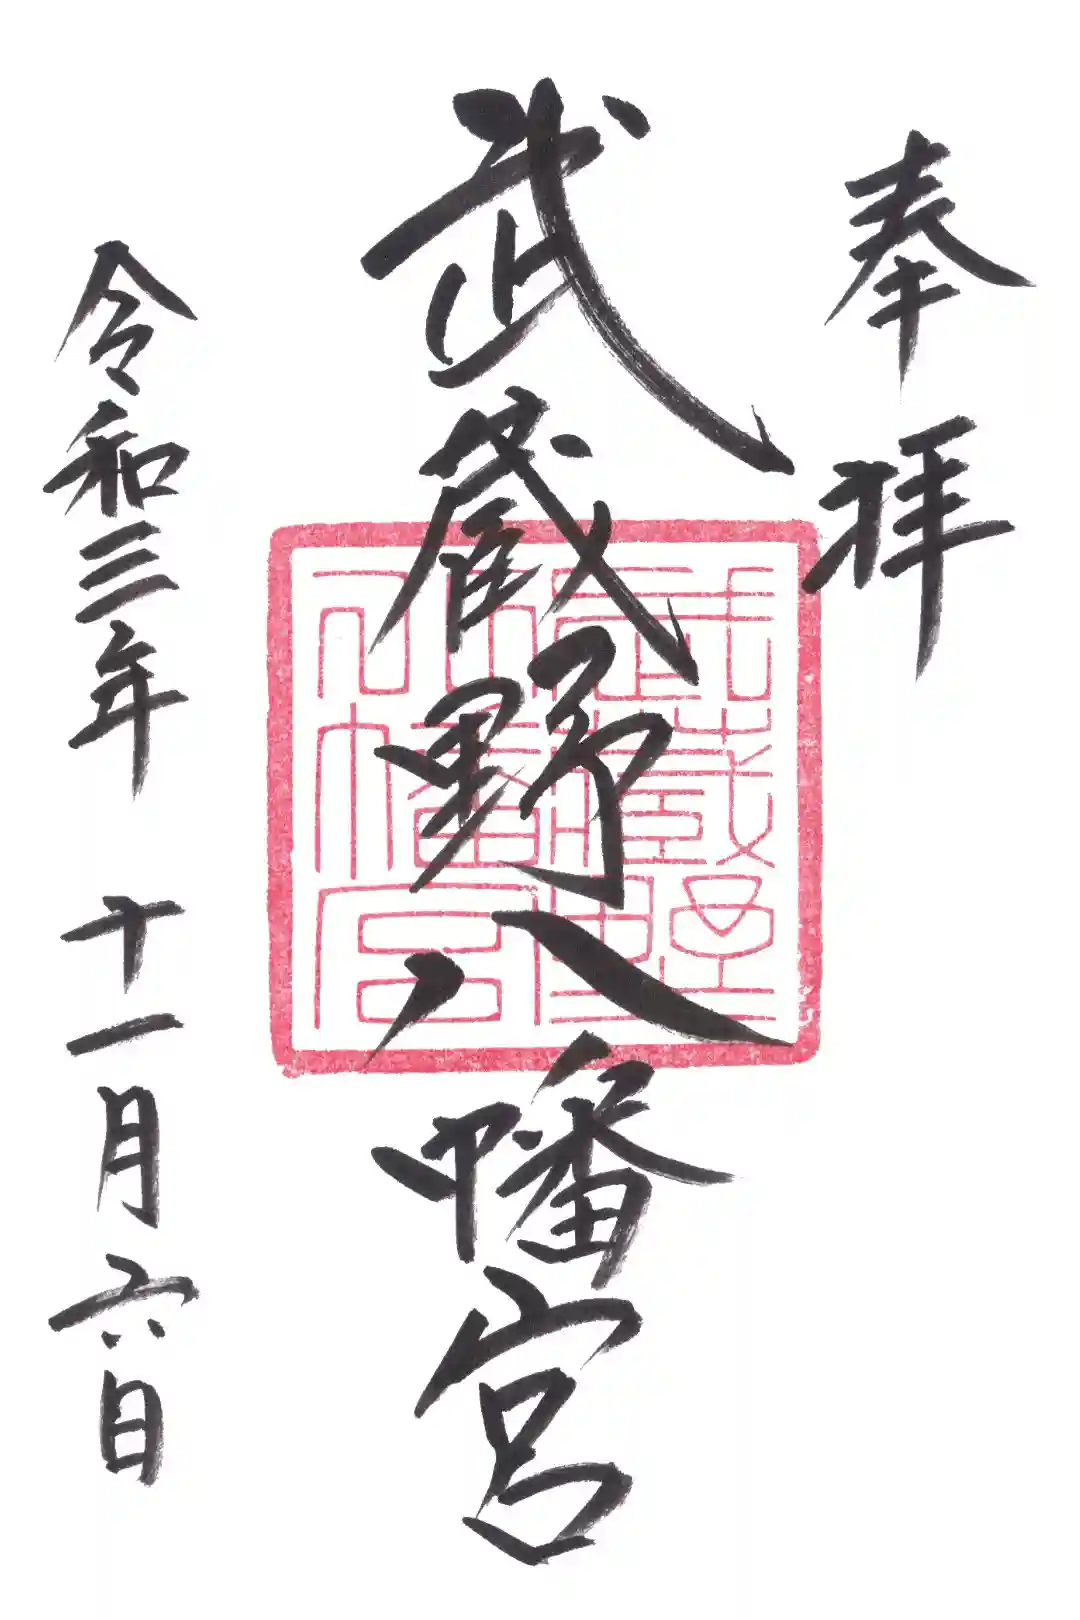 奉拝
武蔵野八幡宮
武蔵野八幡宮
令和三年 十一月六日